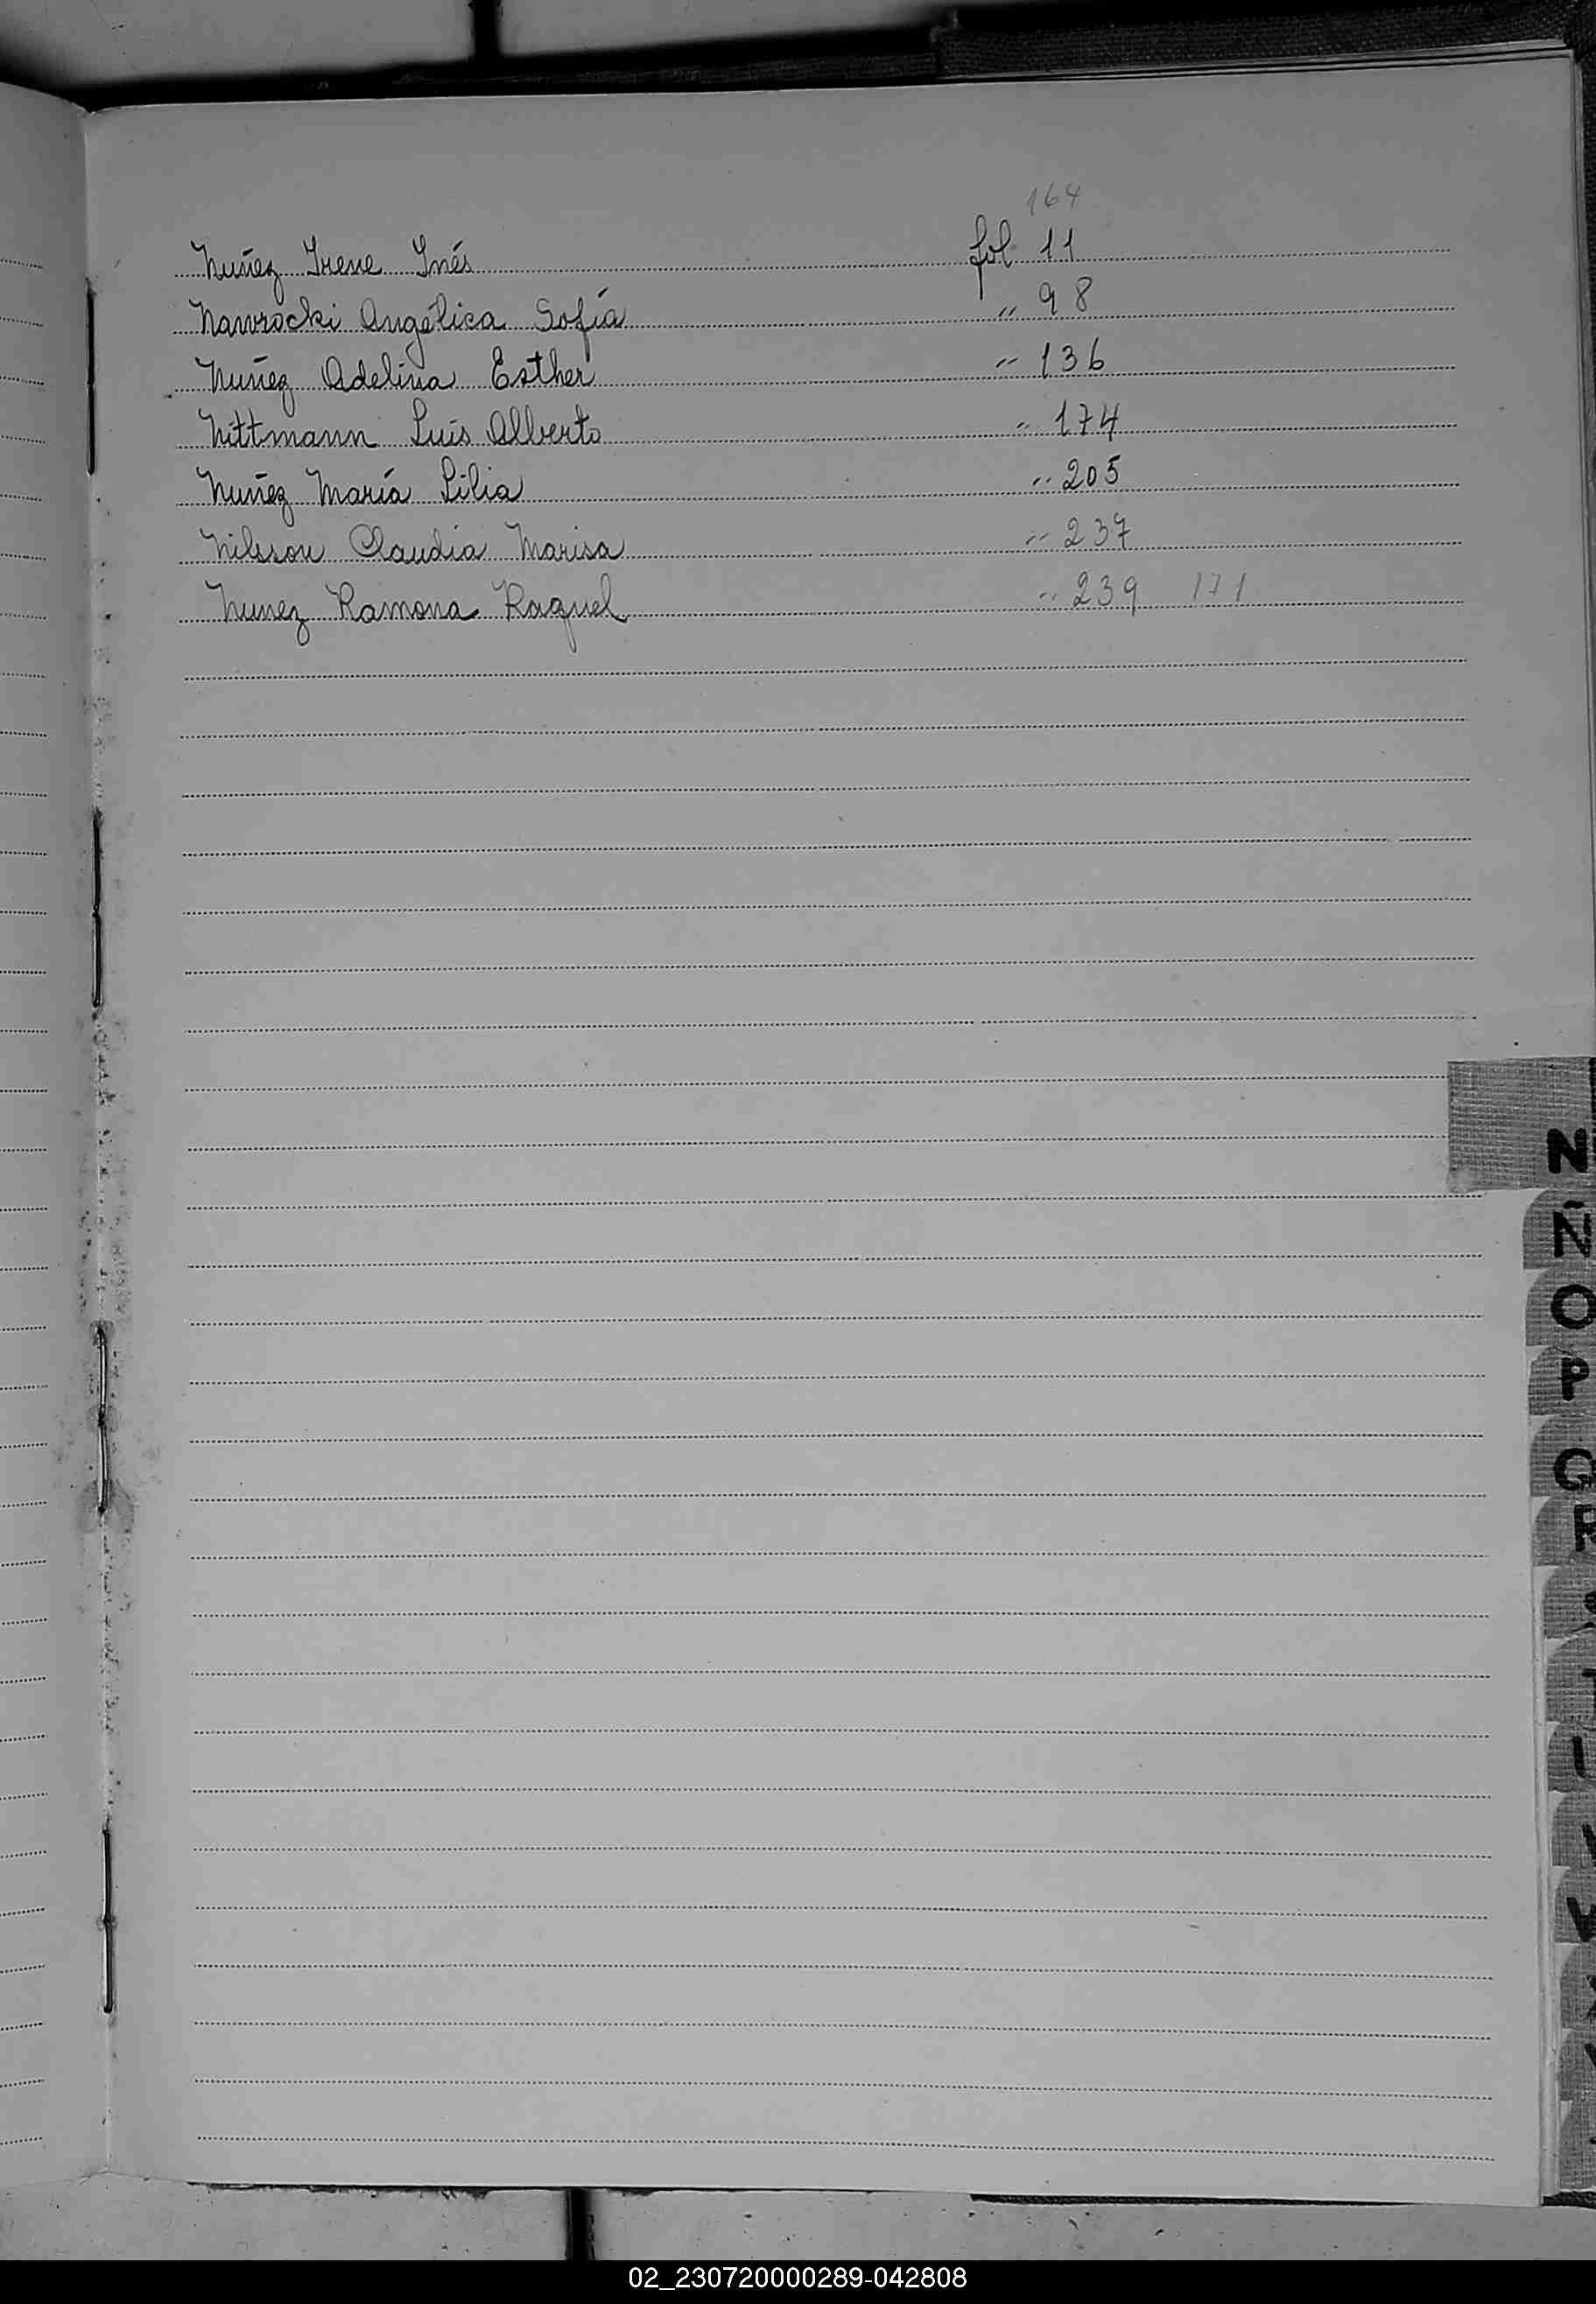 164
Nuñez Irene Inés fol 11
Nawrocki Angélica Sofía " 98
Nuñez Adelina Esther " 136
Nittmann Luis Alberto " 174
Nuñez María Lilia " 205
Nilsson Claudia Marisa " 237
Nunez Ramona Raquel " 239 171
N
Ñ
O
P
Q
R
02_230720000289-042808